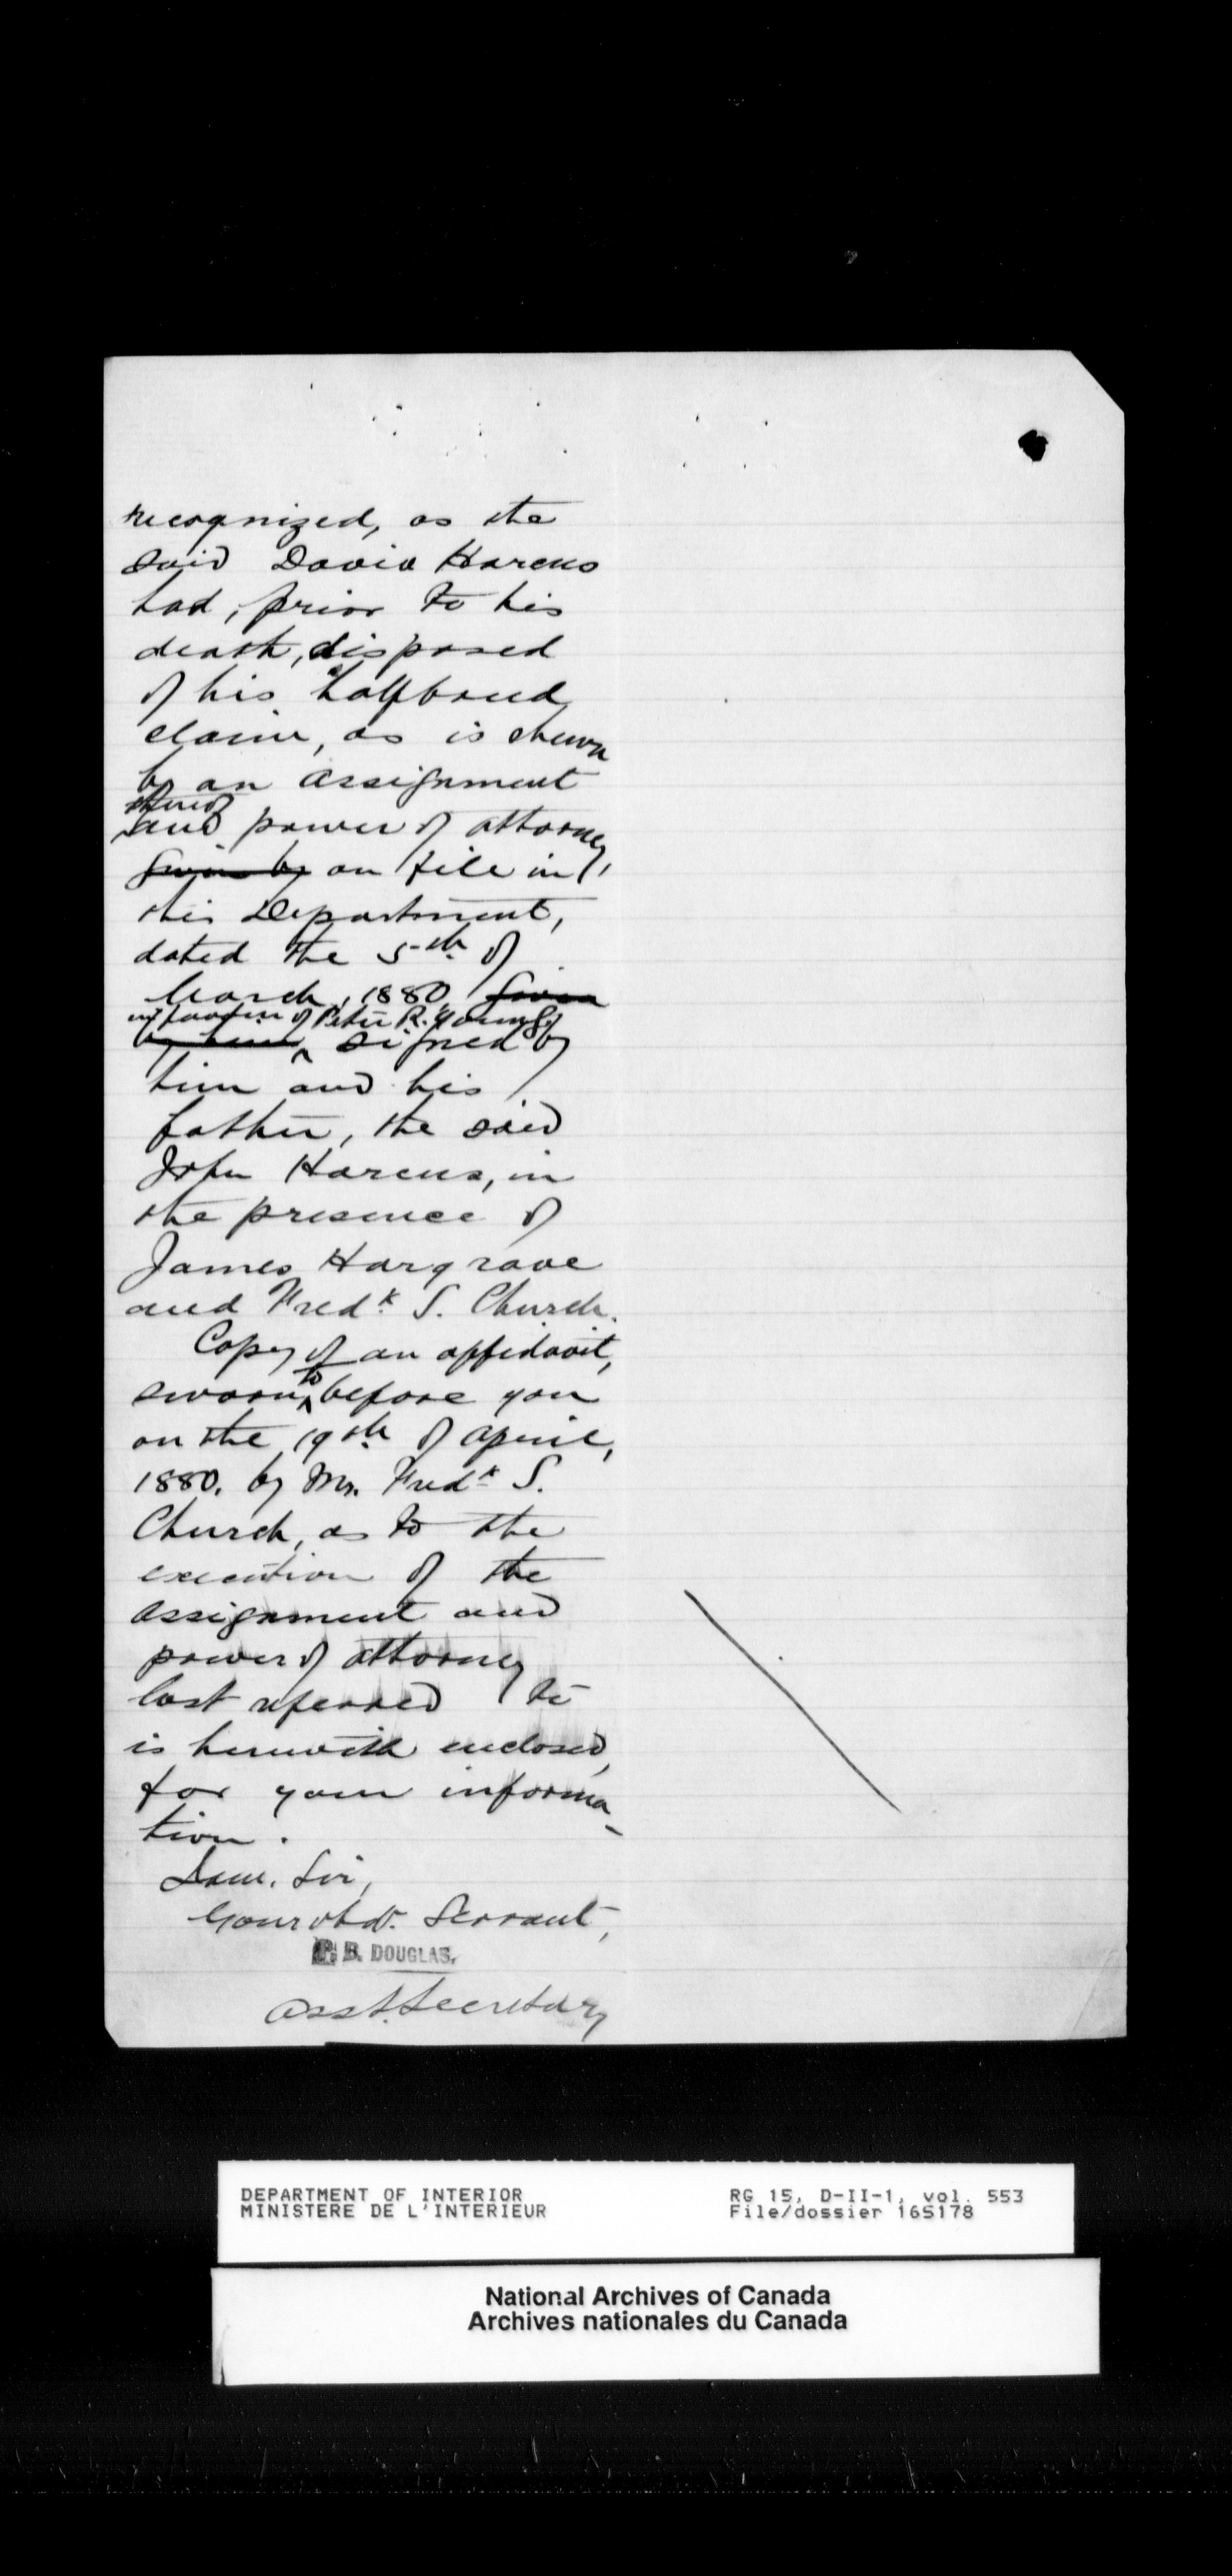 recognized, as the
said David Harcus
had, prior to his
death, disposed
of his halfbreed
claim, as is shewn
by an assignment
thereof
and power of attorney,
given by on file in
this Department,
dated the 5th of
March, 1880, given
in favor of Peter R. Young
by him signed by
him and his
father, the said
John Harcus, in
the presence of
James Hargrave
and Fredk S. Church.
Copy of an affidavit,
sworn to before you
on the 19th of April,
1880, by Mr. Fredk S.
Church, as to the
execution of the
assignment and
power of attorney
last referred to
is herewith enclosed,
for your informa-
tion.
I am, Sir,
Your obdt. Servant,
P. B. DOUGLAS,
Asst. Secretary
DEPARTMENT OF INTERIOR
MINISTERE DE L'INTERIEUR
RG 15, D-II-1, vol. 553
File/dossier 165178
National Archives of Canada
Archives nationales du Canada